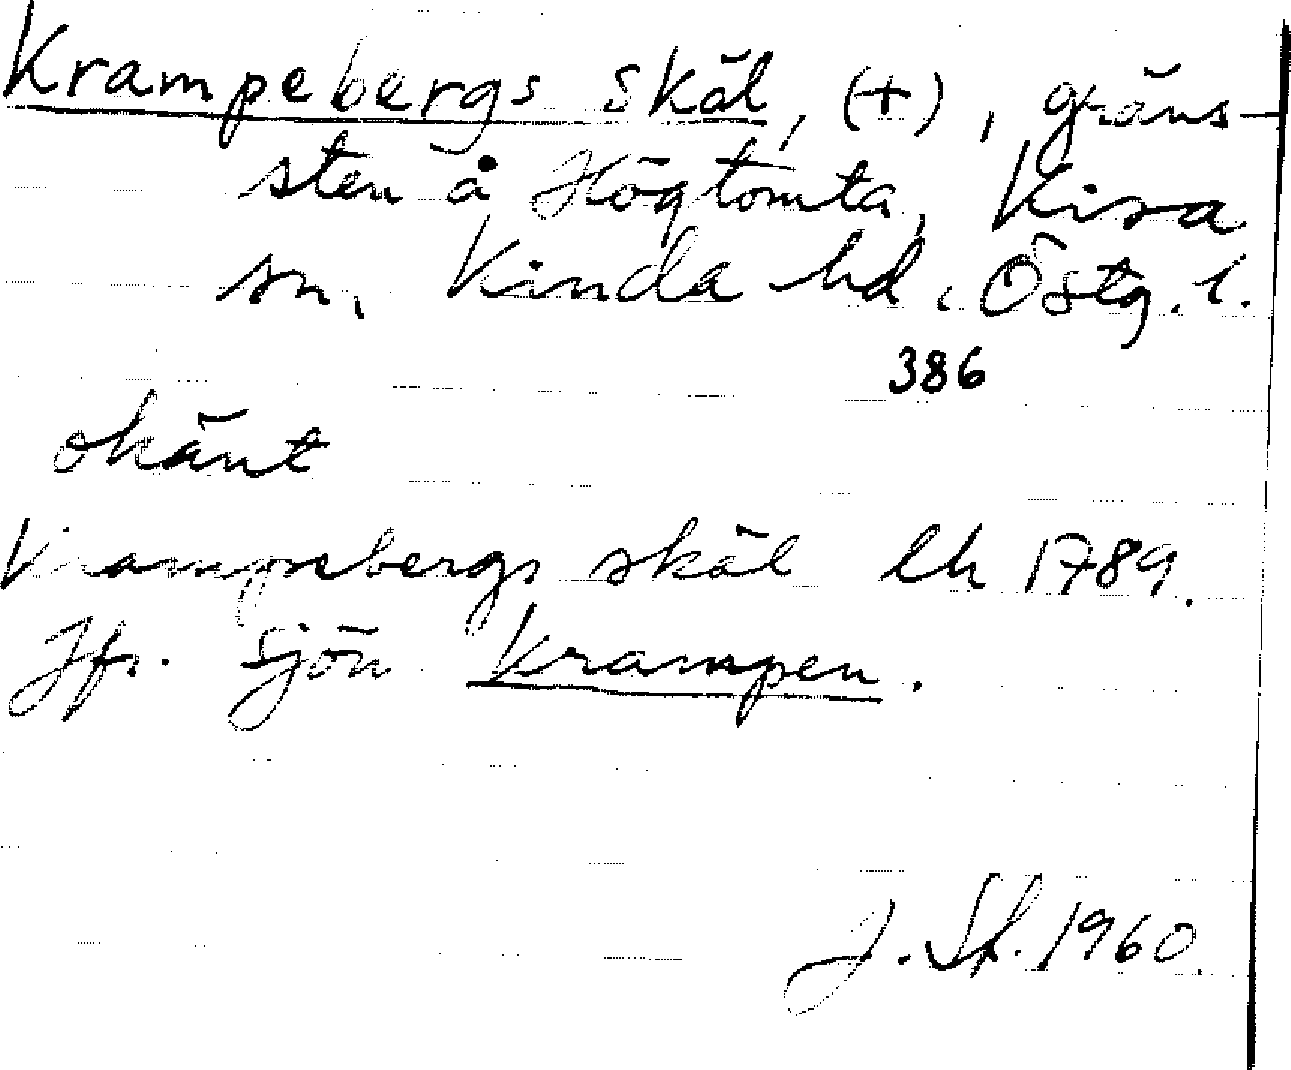 Krampebergs skäl, (+), gräns-
sten å Högtomta, Kisa
sn, Kinda hd, Östg. l.
386
okänt
Krampebergs skäl lh 1789.
Jfr. sjön Krampen.
J. Sk. 1960.